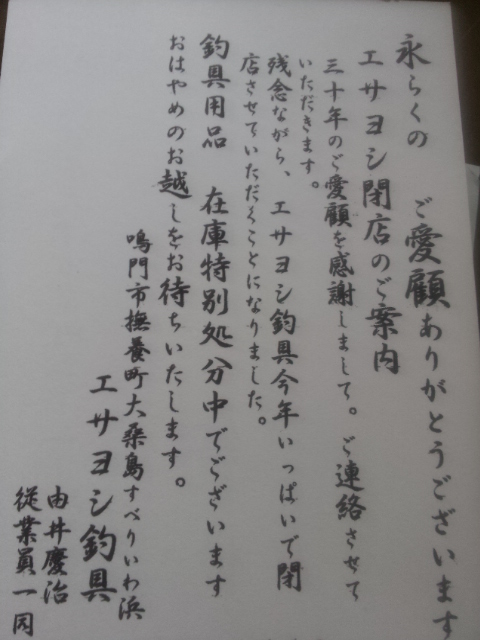 永らくの ご愛顧ありがとうございます
エサヨシ閉店のご案内
三十年のご愛顧を感謝しまして。ご連絡させて
いただきます。
残念ながら、エサヨシ釣具今年いっぱいで閉
店させていただくことになりました。
釣具用品 在庫特別処分中でございます
おはやめのお越しをお待ちいたします。
鳴門市撫養町大桑島すべりいわ浜
エサヨシ釣具
由井慶治
従業員一同